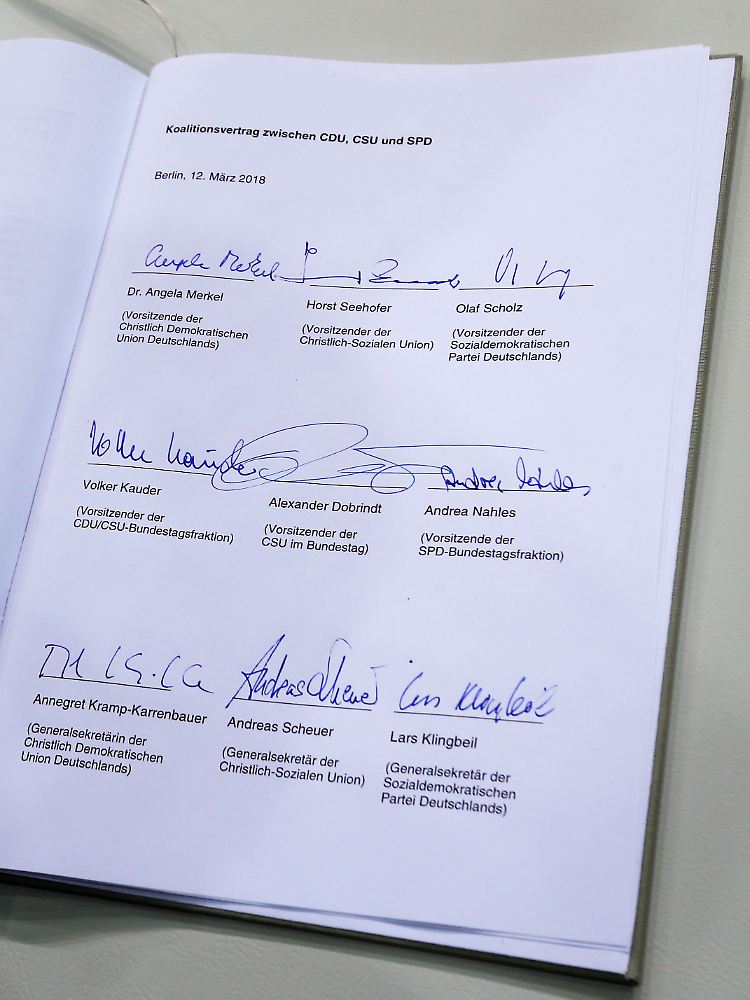 Koalitionsvertrag zwischen CDU, CSU und SPD
Berlin, 12. März 2018
Angela Merkel
Dr. Angela Merkel
(Vorsitzende der
Christlich Demokratischen
Union Deutschlands)
Horst Seehofer
(Vorsitzender der
Christlich-Sozialen Union)
Olaf Scholz
(Vorsitzender der
Sozialdemokratischen
Partei Deutschlands)
Volker Kauder
Volker Kauder
(Vorsitzender der
CDU/CSU-Bundestagsfraktion)
Alexander Dobrindt
(Vorsitzender der
CSU im Bundestag)
Andrea Nahles
Andrea Nahles
(Vorsitzende der
SPD-Bundestagsfraktion)
Annegret Kramp-Karrenbauer
(Generalsekretärin der
Christlich Demokratischen
Union Deutschlands)
Andreas Scheuer
Andreas Scheuer
(Generalsekretär der
Christlich-Sozialen Union)
Lars Klingbeil
Lars Klingbeil
(Generalsekretär der
Sozialdemokratischen
Partei Deutschlands)